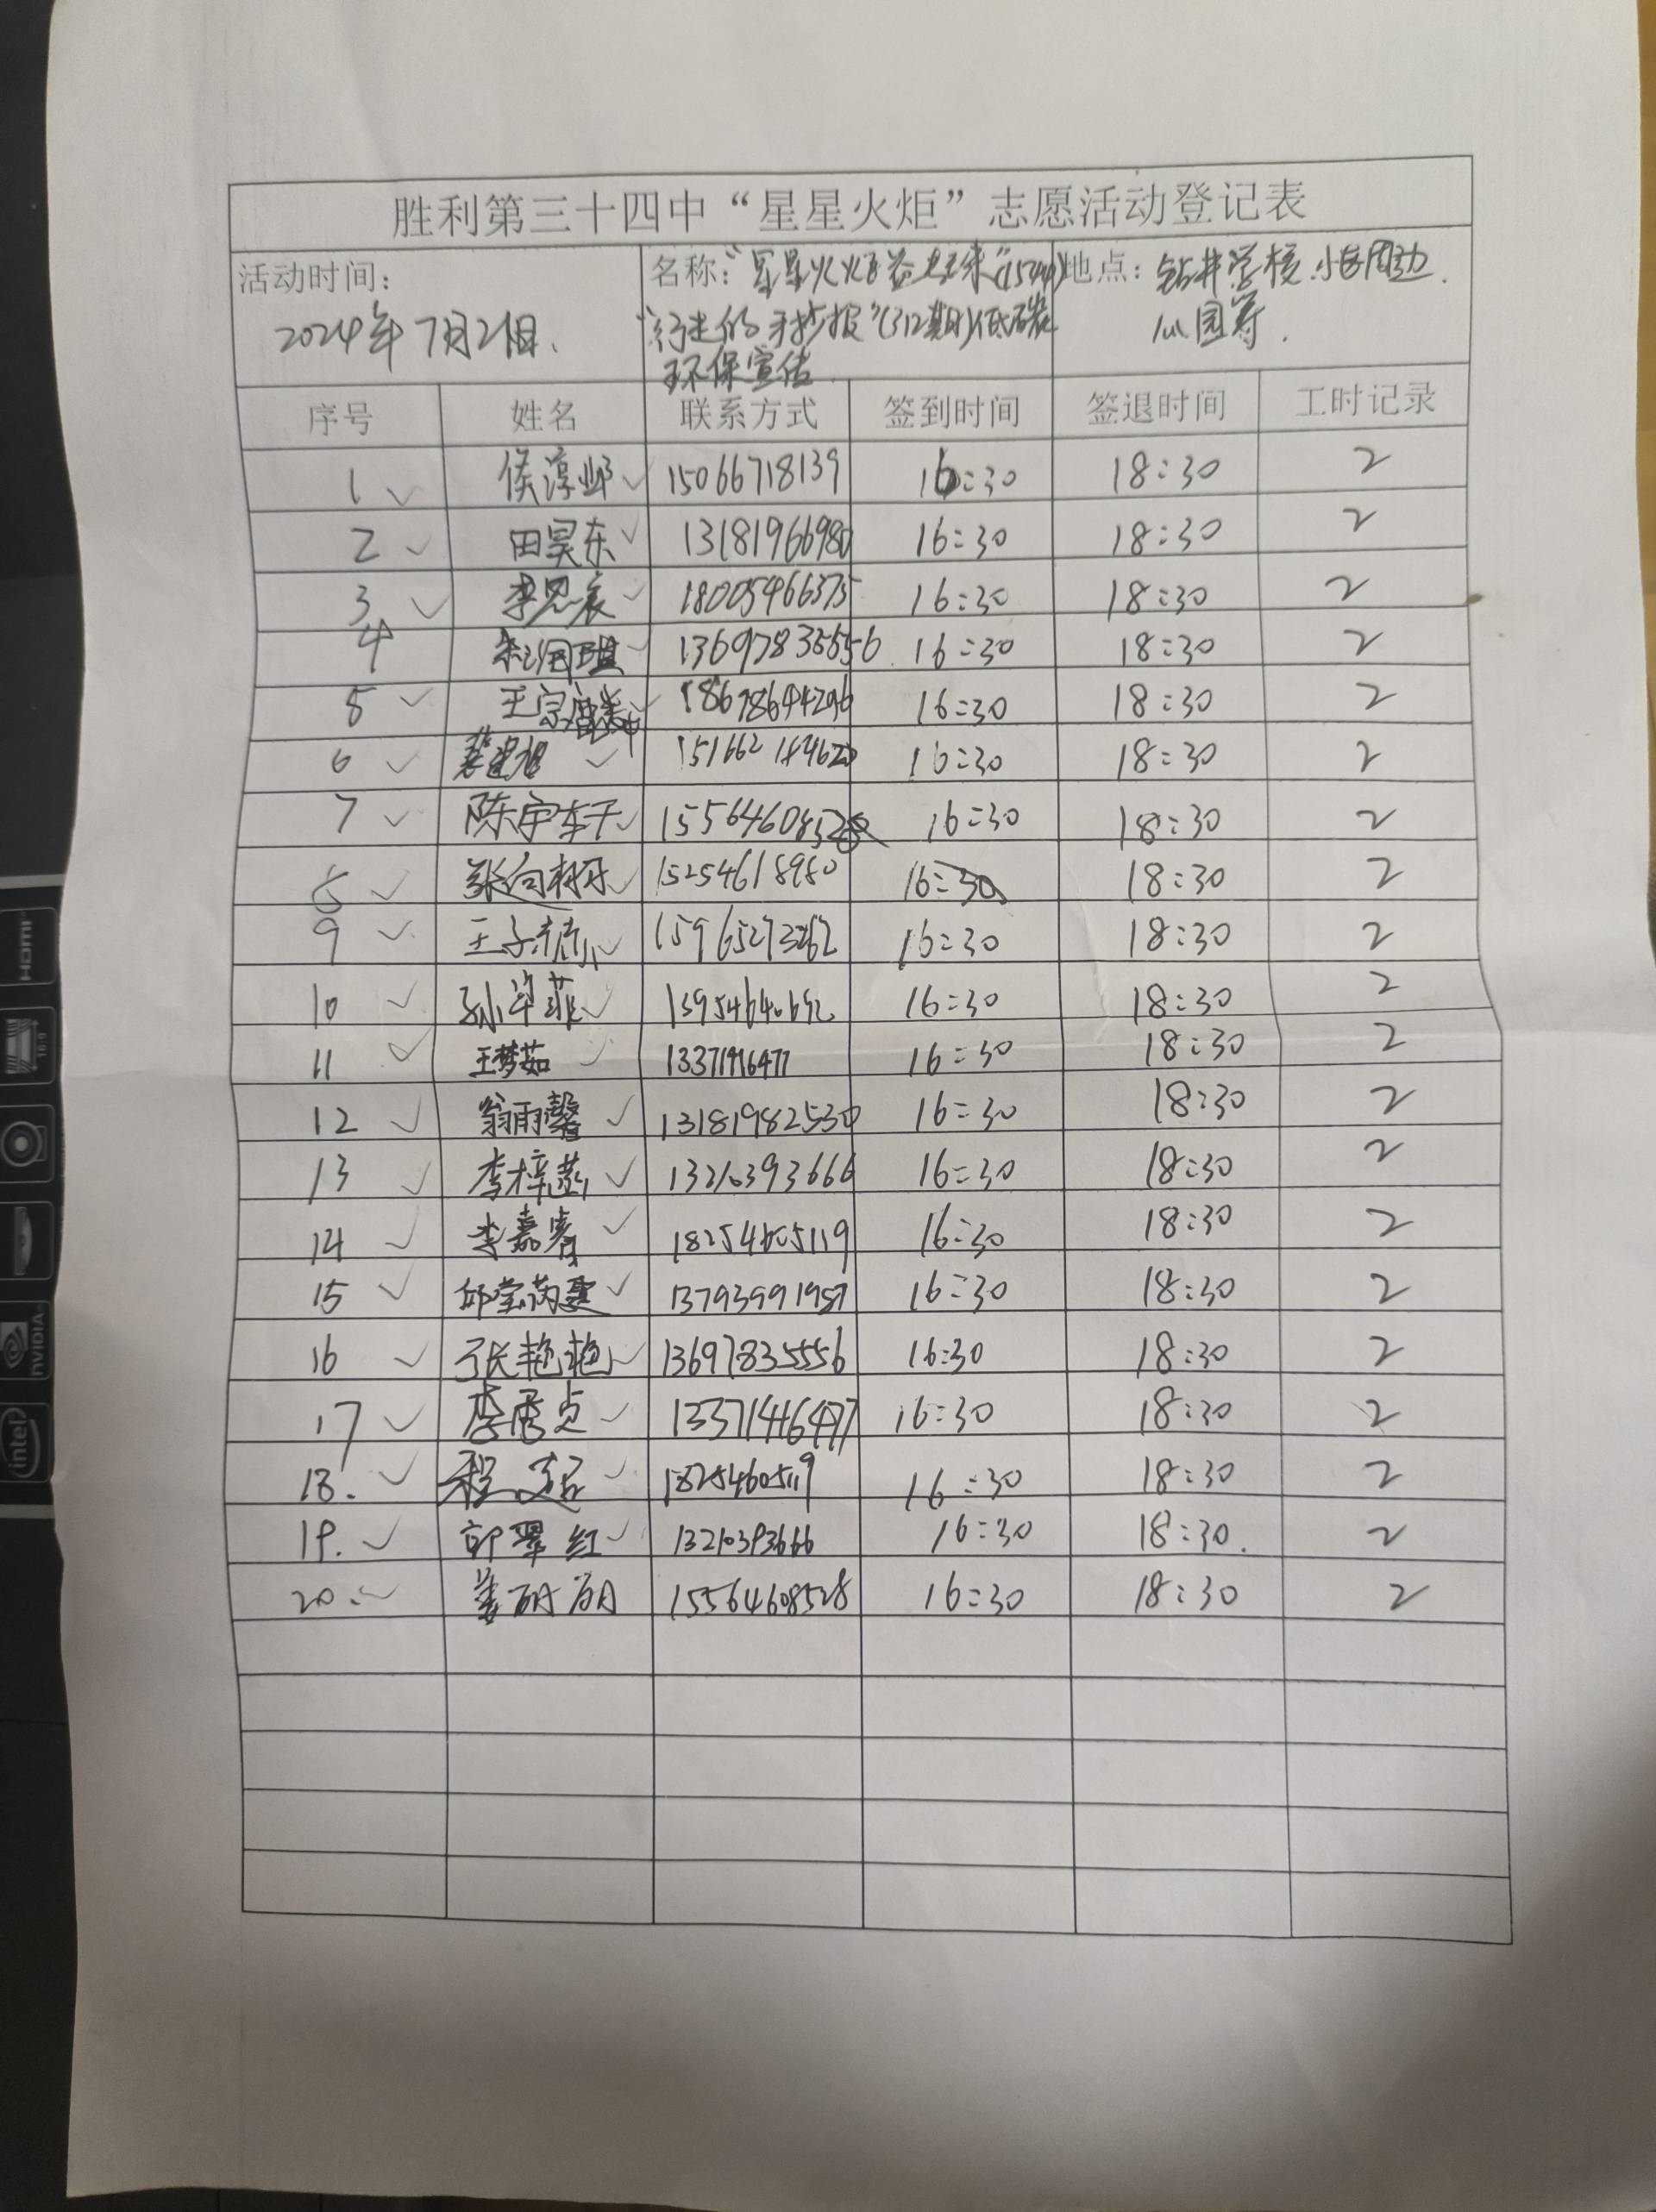 胜利第三十四中“星星火炬”志愿活动登记表
活动时间： 2024年7月21日.
名称：“星星火炬益起来”
“行走的手抄报”(312期)低碳
环保宣传
地点：钻井学校.小区周边.
公园等.
序号 姓名 联系方式 签到时间 签退时间 工时记录
1 侯淳邺 15066718139 16:30 18:30 2
2 田昊东 13181966980 16:30 18:30 2
3 李思宸 18005466375 16:30 18:30 2
4 16:30 18:30 2
5 王宗 18678644296 16:30 18:30 2
6 16:30 18:30 2
7 陈宇轩 16:30 18:30 2
8 张向 15254618980 16:30 18:30 2
9 王子 16:30 18:30 2
10 孙 菲 16:30 18:30 2
11 王梦茹 16:30 18:30 2
12 翁雨馨 13181982530 16:30 18:30 2
13 李梓 13210393666 16:30 18:30 2
14 李嘉 18254605119 16:30 18:30 2
15 邱 13793991957 16:30 18:30 2
16 张艳艳 13697835556 16:30 18:30 2
17 李秀贞 16:30 18:30 2
18. 程 18254605119 16:30 18:30 2
19. 翠红 13210393666 16:30 18:30. 2
20. 姜 15564608528 16:30 18:30 2
HDMI
16:9
NVIDIA
intel